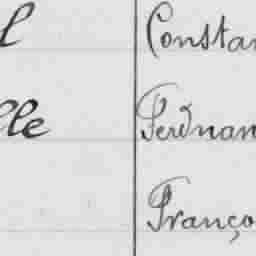 l Constan
lle Ferdinan
Franço